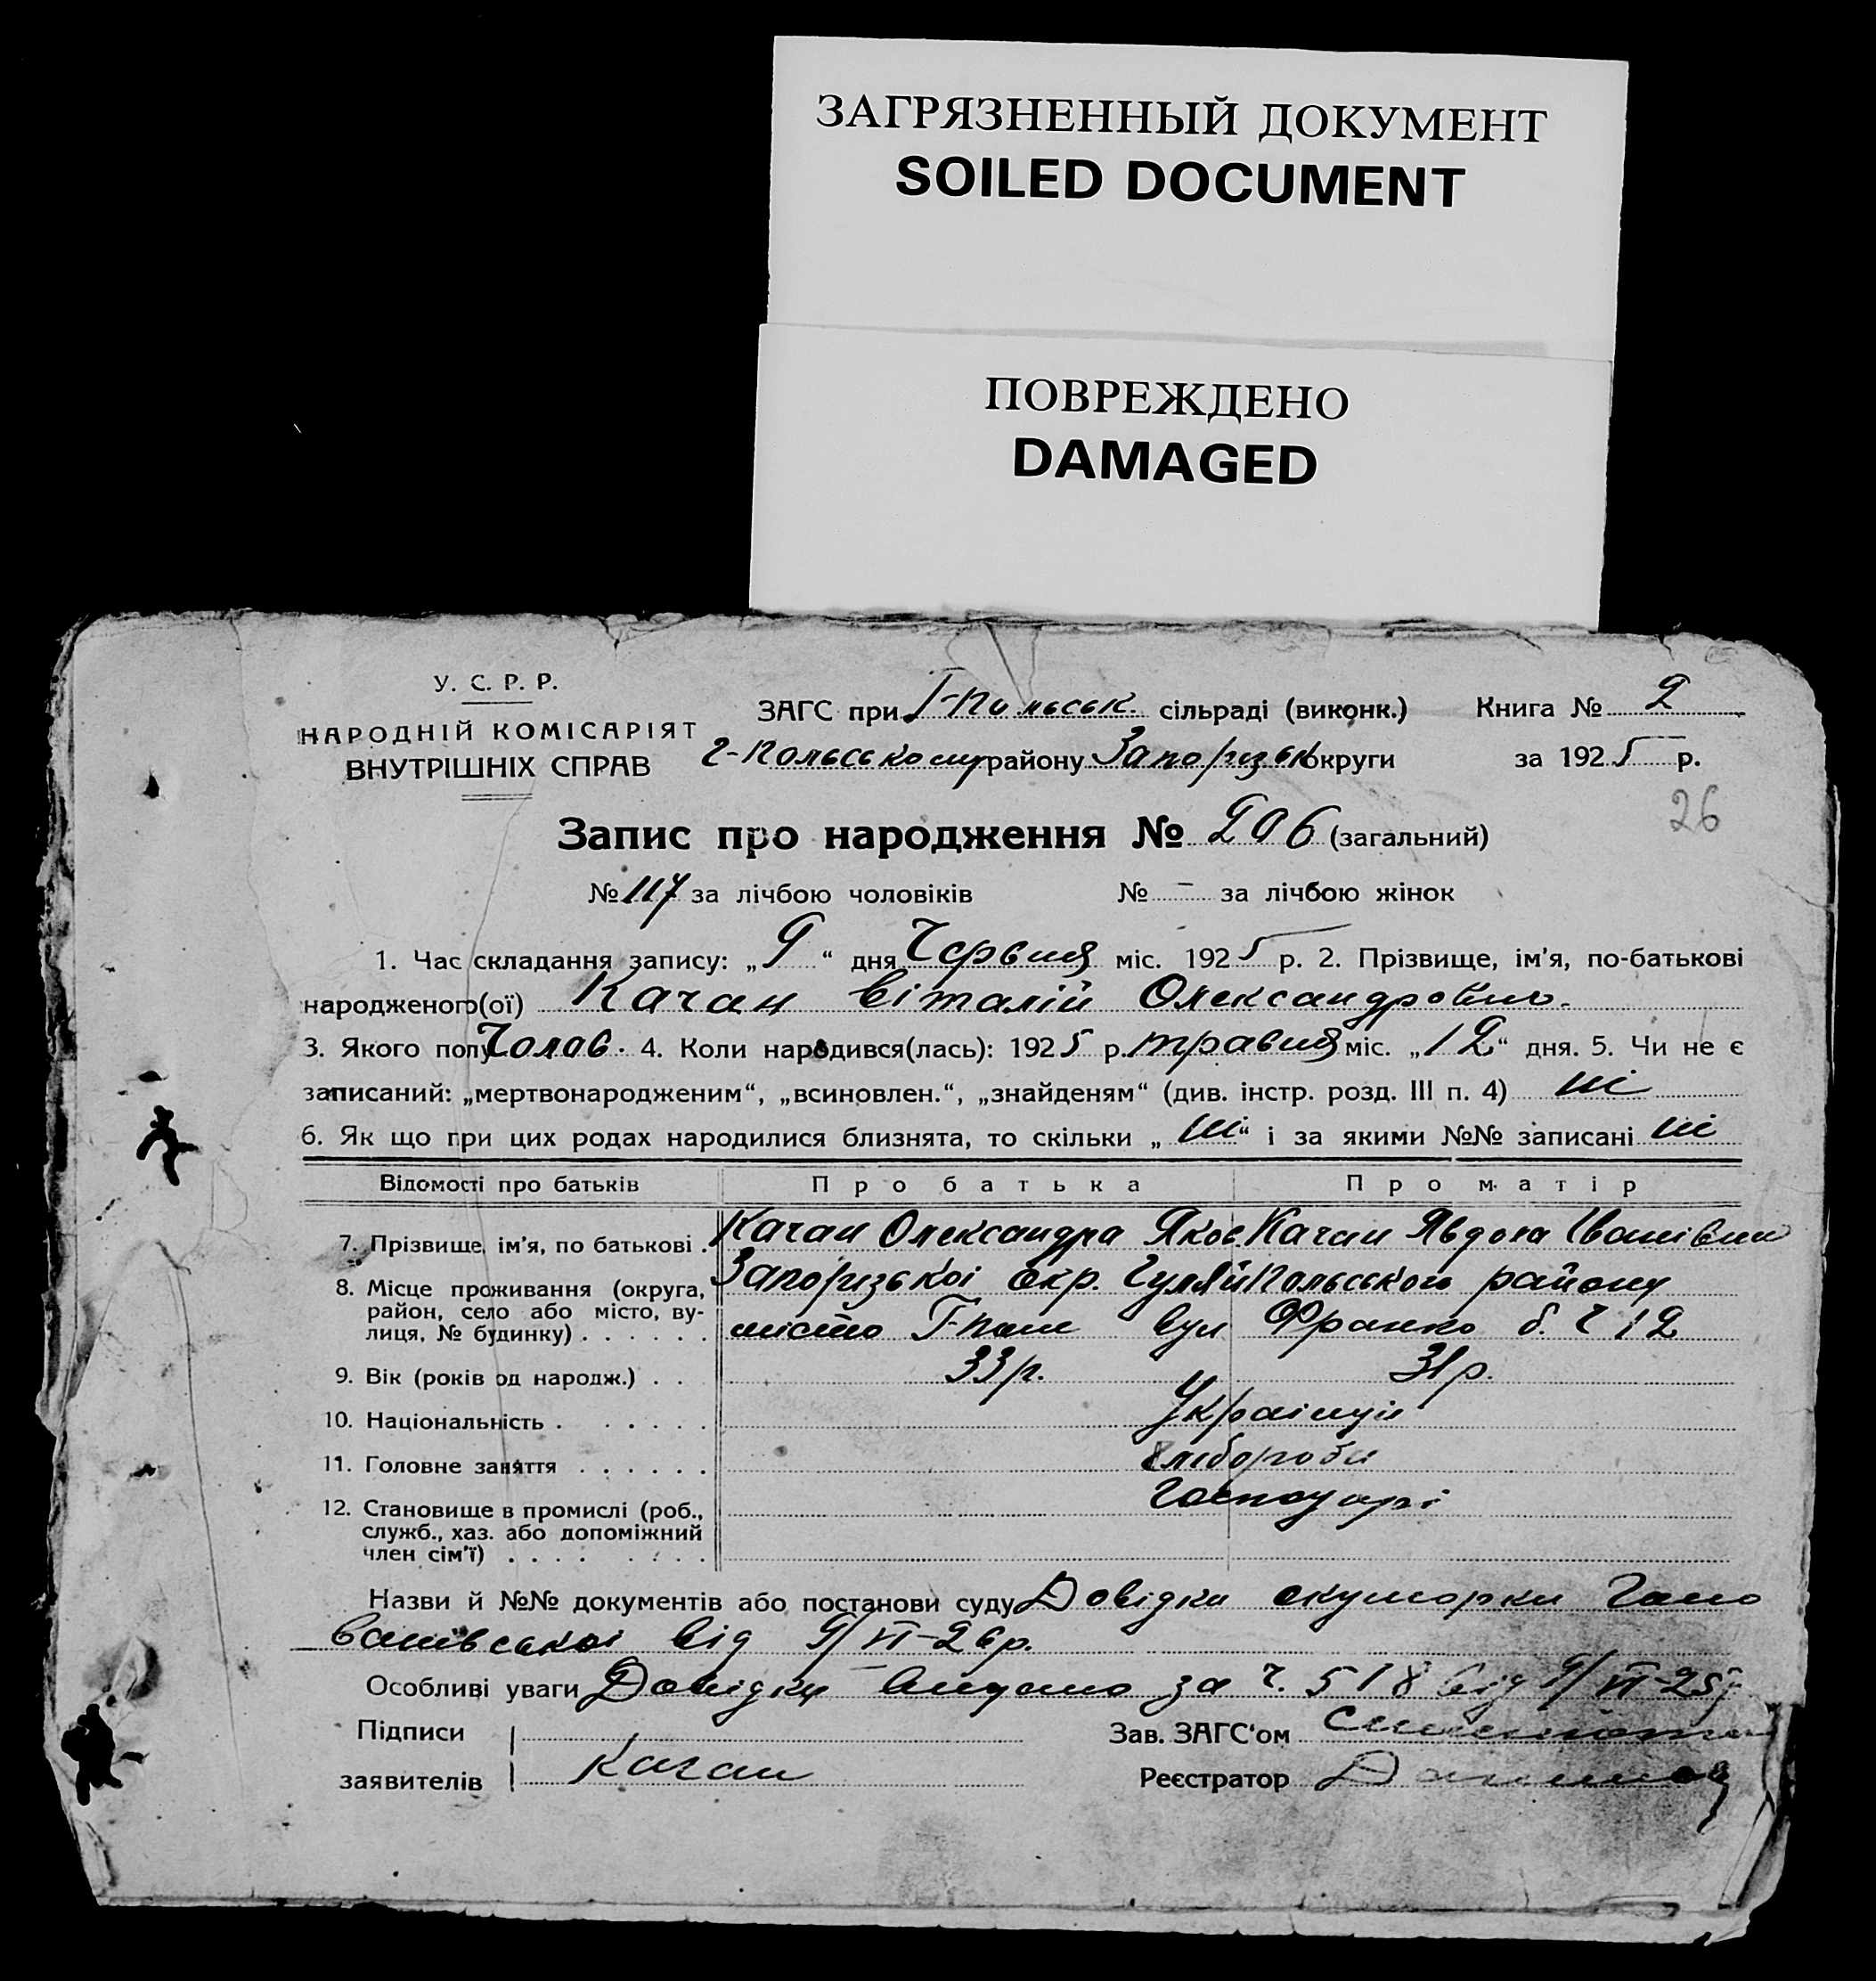 ЗАГРЯЗНЕННЫЙ ДОКУМЕНТ
SOILED DOCUMENT
ПОВРЕЖДЕНО
DAMAGED
У. С. Р. Р.
НАРОДНІЙ КОМІСАРІЯТ
ВНУТРІШНІХ СПРАВ
ЗАГС при сільраді (виконк.) Книга № 2
Г-Польському району Запорізьк округи за 1925 р.
26
Запис про народження № 206 (загальний)
№ 117 за лічбою чоловіків № – за лічбою жінок
1. Час складання запису: „9“ дня Червня міс. 1925 р. 2. Прізвище, ім'я, по-батькові
народженого(ої) Качан Віталій Олександрович.
3. Якого полу Чолов. 4. Коли народився(лась): 1925 р. травня міс. „12“ дня. 5. Чи не є
записаний: „мертвонародженим“, „всиновлен.“, „знайденям“ (див. інстр. розд. III п. 4) ні
6. Як що при цих родах народилися близнята, то скільки „ні“ і за якими №№ записані ні
Відомості про батьків Про батька Про матір
7. Прізвище, ім'я, по батькові . Качан Олександра Яков. Качан Явдоха Іванівна
8. Місце проживання (округа, Запорізької окр. Гуляйпольського району
район, село або місто, ву-
лиця, № будинку) . . . . . . місто Г-поле вул Франко б. ч 12
9. Вік (років од народж.) . . 33 р. 31 р.
10. Національність . . . . . . Українці
11. Головне заняття . . . . . . хлібороби
12. Становище в промислі (роб., Господарі
служб., хаз. або допоміжний
член сім'ї) . . . . . . . .
Назви й №№ документів або постанови суду Довідка
від 9/VI-26р.
Особливі уваги Довідку видано за ч. 518 від 9/VI-25р
Підписи Зав. ЗАГС'ом
заявителів Качан Реєстратор